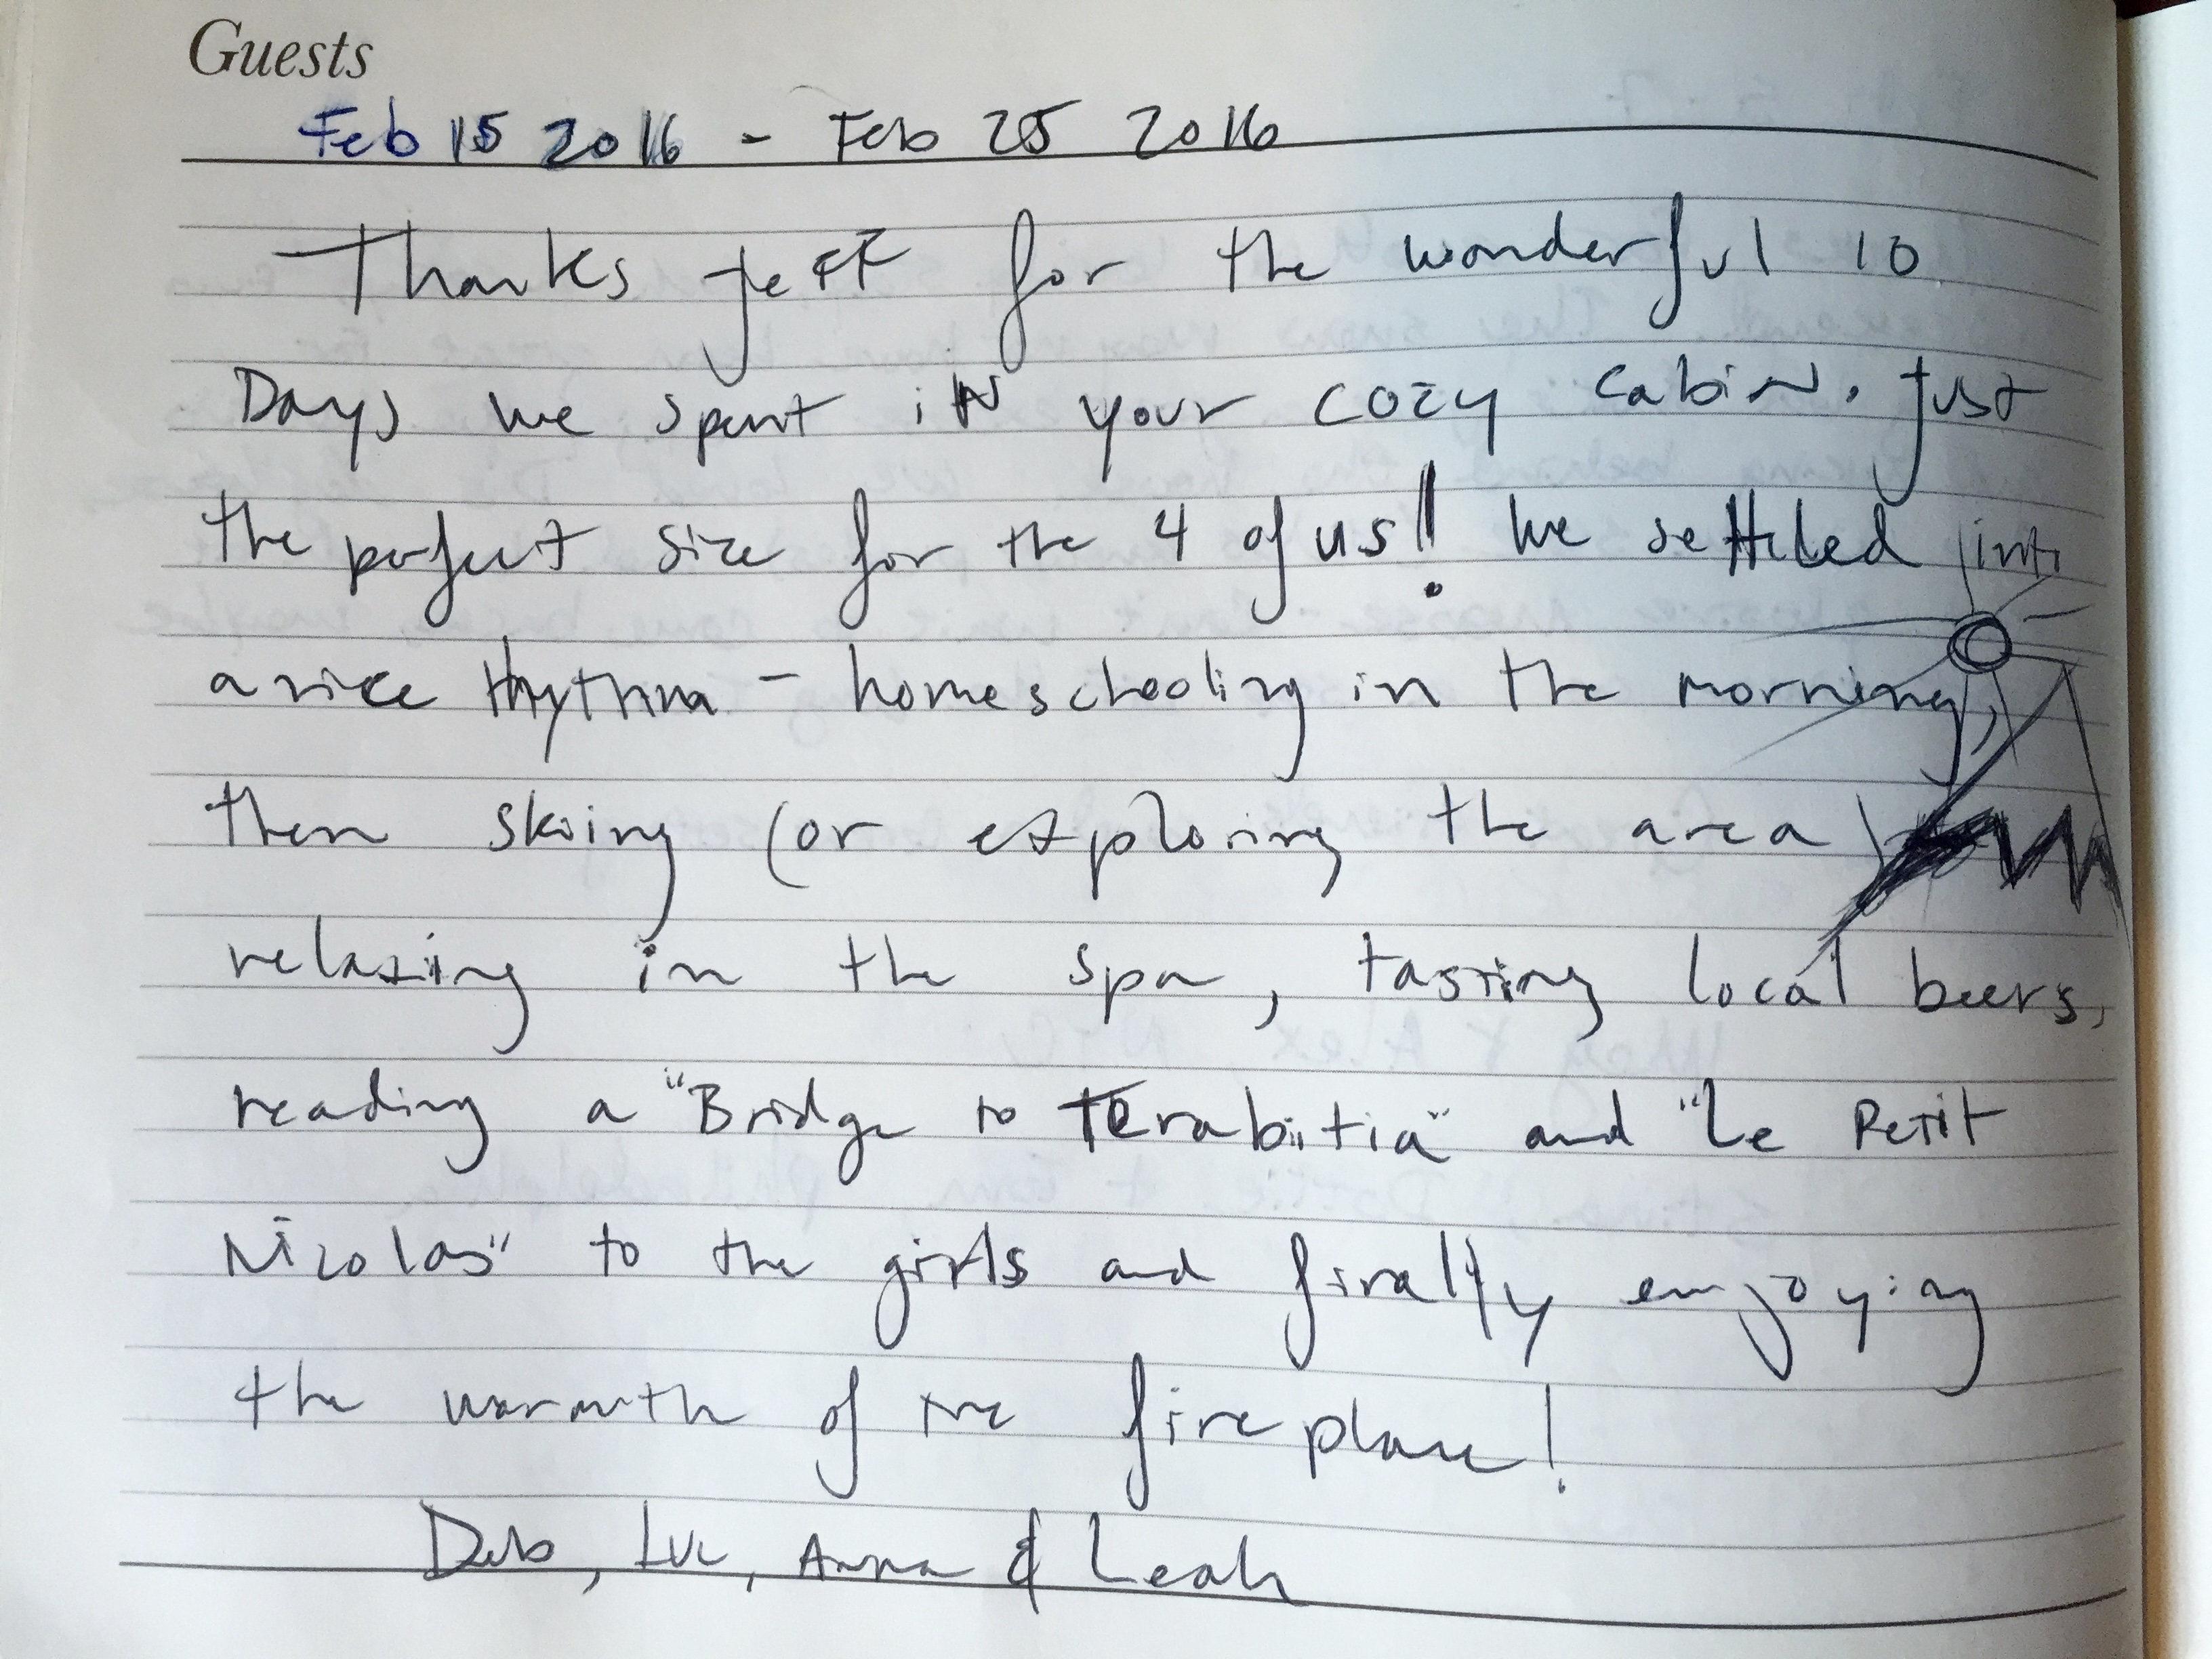 Guests
Feb 15 2016 - Feb 25 2016
Thanks Jeff for the wonderful 10
Days we spent in your cozy cabin. Just
the perfect size for the 4 of us!! We settled into
a nice rhythm - homeschooling in the morning,
then skiing (or exploring the area)
relaxing in the spa, tasting local beers,
reading a "Bridge to Terabitia" and "Le Petit
Nicolas" to the girls and finally enjoying
the warmth of the fireplace!
Deb, Luc, Anna & Leah